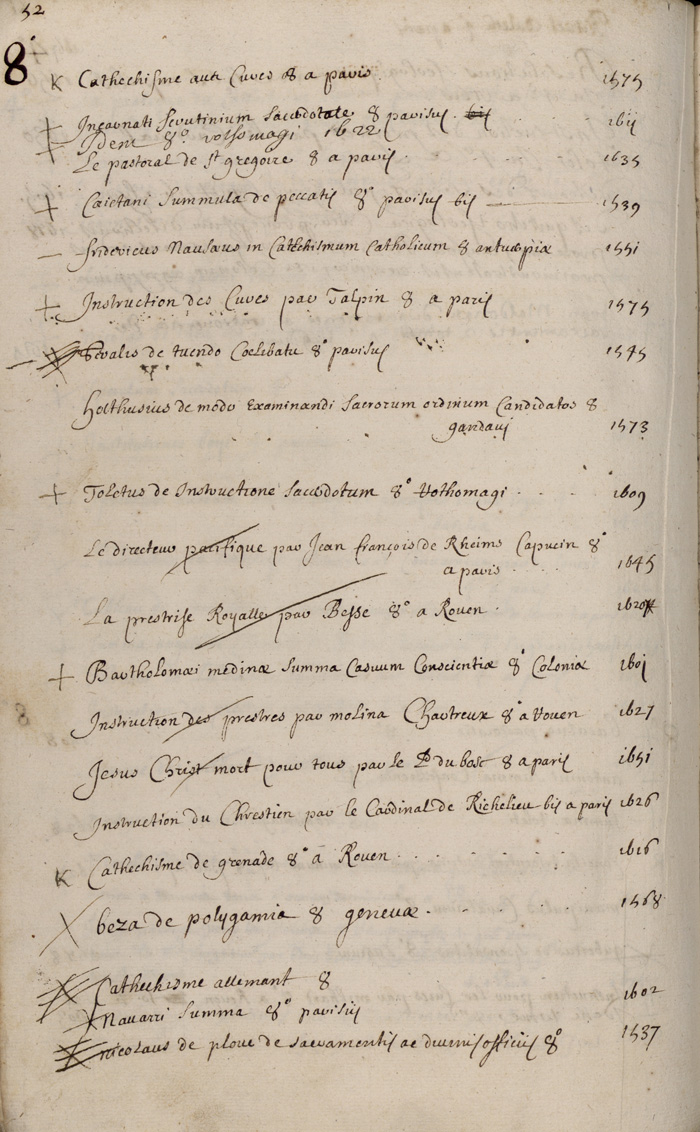 52
8
K Cathechisme aux Cures 8 a paris 1575
+ Incarnati Scrutinium Sacerdotale 8 parisiis bis 1611
+ Idem 8° rothomagi 1622
Le pastoral de st gregoire 8 a paris 1635
+ Caietani Summula de peccatis 8° parisiis bis 1539
Fridericus Nausaeus in Cathechismum Catholicum 8 antuerpiae 1551
+ Instruction des Cures par Talpin 8 a paris 1575
de tuendo Coelibatu 8° parisiis 1545
Holthusius de modo Examinandi Sacrorum ordinum Candidatos 8
gandavi 1573
+ Toletus de Instructione Sacerdotum 8° Rothomagi 1609
Le directeur pacifique par Jean françois de Rheims Capucin 8°
a paris 1645
La prestrise Royalle par Besse 8° a Rouen 1620
+ Bartholomaei medinae Summa Casuum Conscientiae 8° Coloniae 1601
Instruction des prestres par molina Chartreux 8° a Rouen 1627
Jesus Christ mort pour tous par le P du bosc 8 a paris 1651
Instruction du Chrestien par le Cardinal de Richelieu bis a paris 1626
K Cathechisme de grenade 8° a Rouen 1616
beza de polygamia 8 genevae 1568
Cathechisme allemant 8 1602
Navarri Summa 8° parisiis
nicolaus de ploue de sacramentis ac divinis officiis 8° 1537